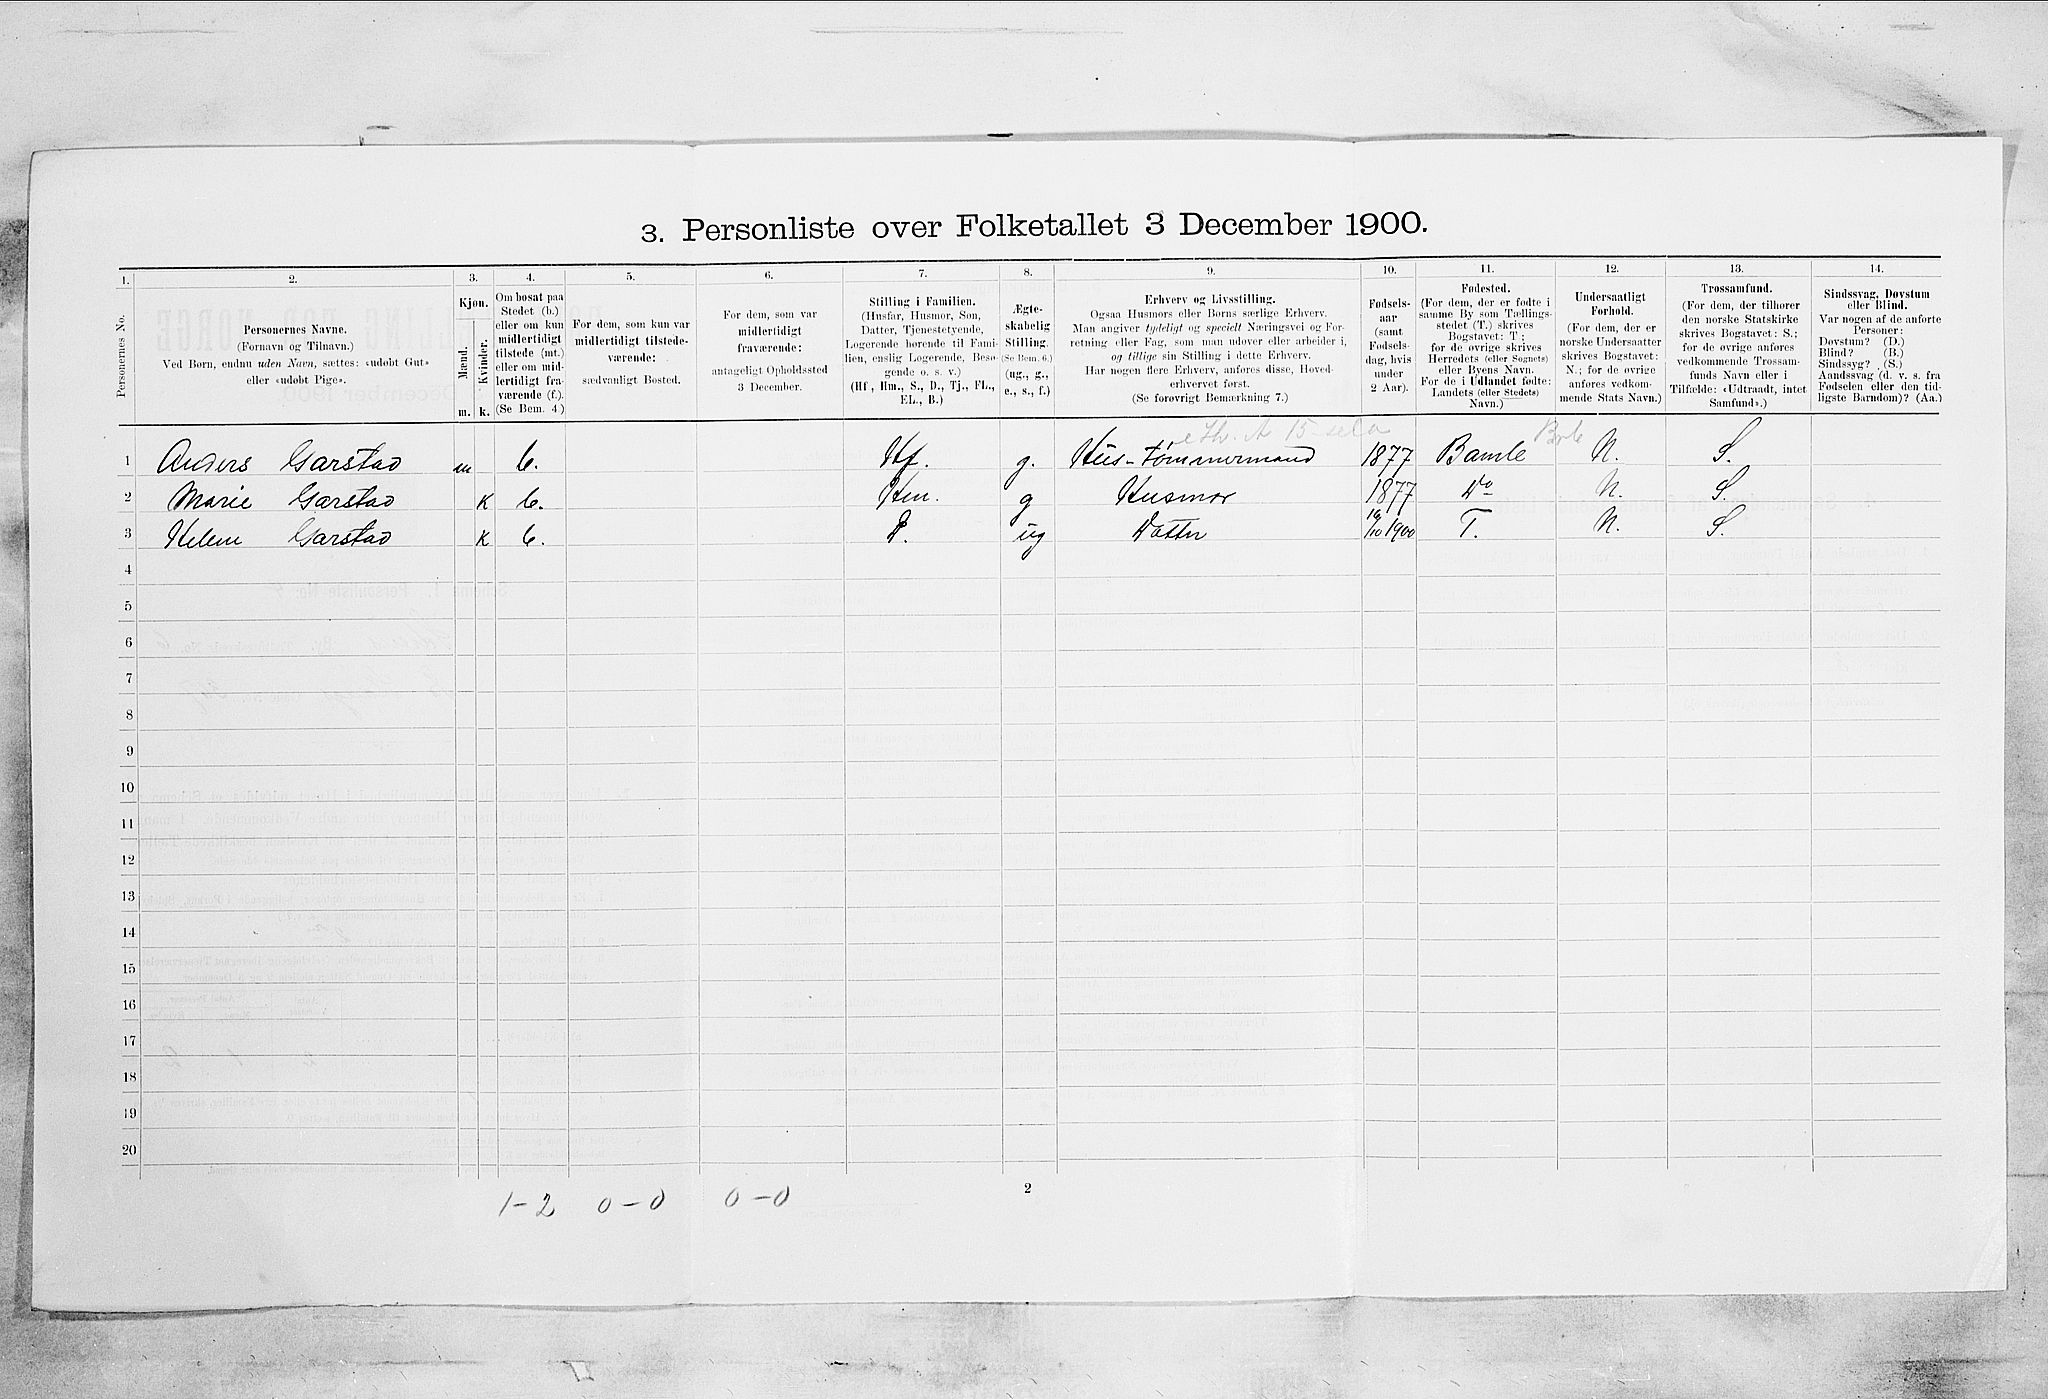 3. Personliste over Folketallet 3 December 1900.
1. 2. 3. 4. 5. 6. 7. 8. 9. 10. 11. 12. 13. 14.
Personernes No.
Personernes Navne.
(Fornavn og Tilnavn.)
Ved Børn, endnu uden Navn, sættes: «udøbt Gut»
eller «udøbt Pige».
Kjøn.
Mænd.
Kvinder.
m. k.
Om bosat paa
Stedet (b.)
eller om kun
midlertidigt
tilstede (mt.)
eller om mid-
lertidigt fra-
værende (f.).
(Se Bem. 4.)
For dem, som kun var
midlertidigt tilstede-
værende:
sædvanligt Bosted.
For dem, som var
midlertidigt
fraværende:
antageligt Opholdssted
3 December.
Stilling i Familien.
(Husfar, Husmor, Søn,
Datter, Tjenestetyende,
Logerende hørende til Fami-
lien, enslig Logerende, Besø-
gende o. s. v.)
(Hf., Hm., S., D., Tj., FL.,
EL., B.)
Ægte-
skabelig
Stilling.
(Se Bem. 6.)
(ug., g.,
e., s., f.)
Erhverv og Livsstilling.
Ogsaa Husmors eller Børns særlige Erhverv.
Man angiver tydeligt og specielt Næringsvei og For-
retning eller Fag, som man udøver eller arbeider i,
og tillige sin Stilling i dette Erhverv.
Har nogen flere Erhverv, anføres disse, Hoved-
erhvervet først.
(Se forøvrigt Bemærkning 7.)
Fødsels-
aar
(samt
Fødsels-
dag, hvis
under
2 Aar).
Fødested.
(For dem, der er fødte i
samme By som Tællings-
stedet (T.) skrives
Bogstavet: T;
for de øvrige skrives
Herredets (eller Sognets)
eller Byens Navn.
For de i Udlandet fødte:
Landets (eller Stedets)
Navn.)
Undersaatligt
Forhold.
(For dem, der er
norske Undersaatter
skrives Bogstavet:
N.; for de øvrige
anføres vedkom-
mende Stats Navn.)
Trossamfund.
(For dem, der tilhører
den norske Statskirke
skrives Bogstavet: S.;
for de øvrige anføres
vedkommende Trossam-
funds Navn eller i
Tilfælde: «Udtraadt, intet
Samfund».)
Sindssvag, Døvstum
eller Blind.
Var nogen af de anførte
Personer:
Døvstum? (D.)
Blind? (B.)
Sindssyg? (S.)
Aandssvag (d. v. s. fra
Fødselen eller den tid-
ligste Barndom)? (Aa.)
1 Anders Garstad m b. Hf. g. Hus-tømmermand 1877 Bamle N. S.
2 Marie Garstad K b. Hm. g Husmor 1877 Do N. S.
3 Helene Garstad K b. D. ug Datter 19/10 1900 T. N. S.
4
5
6
7
8
9
10
11
12
13
14
15
16
17
18
19
20
1-2 0-0 0-0
2